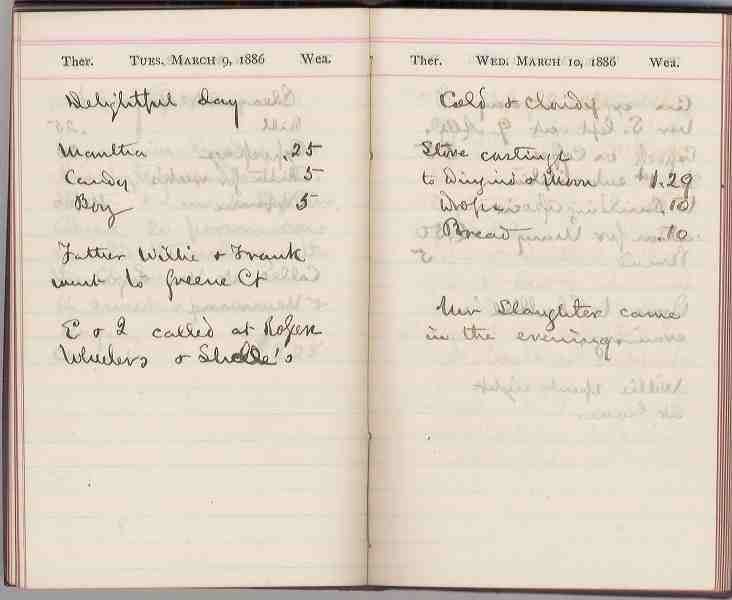 Ther. TUES. MARCH 9, 1886 Wea.
Delightful day
Martha .25
Candy 5
Boy 5
Father Willie & Frank
went to Greene Ct
E & I called at
Wheelers &
Ther. WED. MARCH 10, 1886 Wea.
Cold & cloudy
Stove castings
to & Moon 1.29
Drops .10
Bread .10
Mr Slaughter came
in the evening